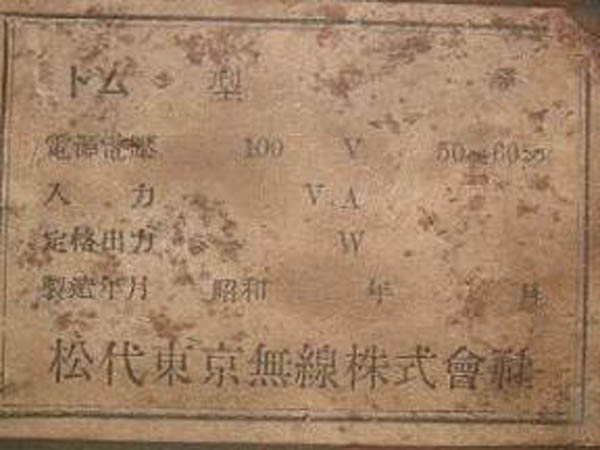 トム 型
電源電壓 100 V 50 60
入力 V.A
定格出力 W
製造年月 昭和 年 月
松代東京無線株式會社